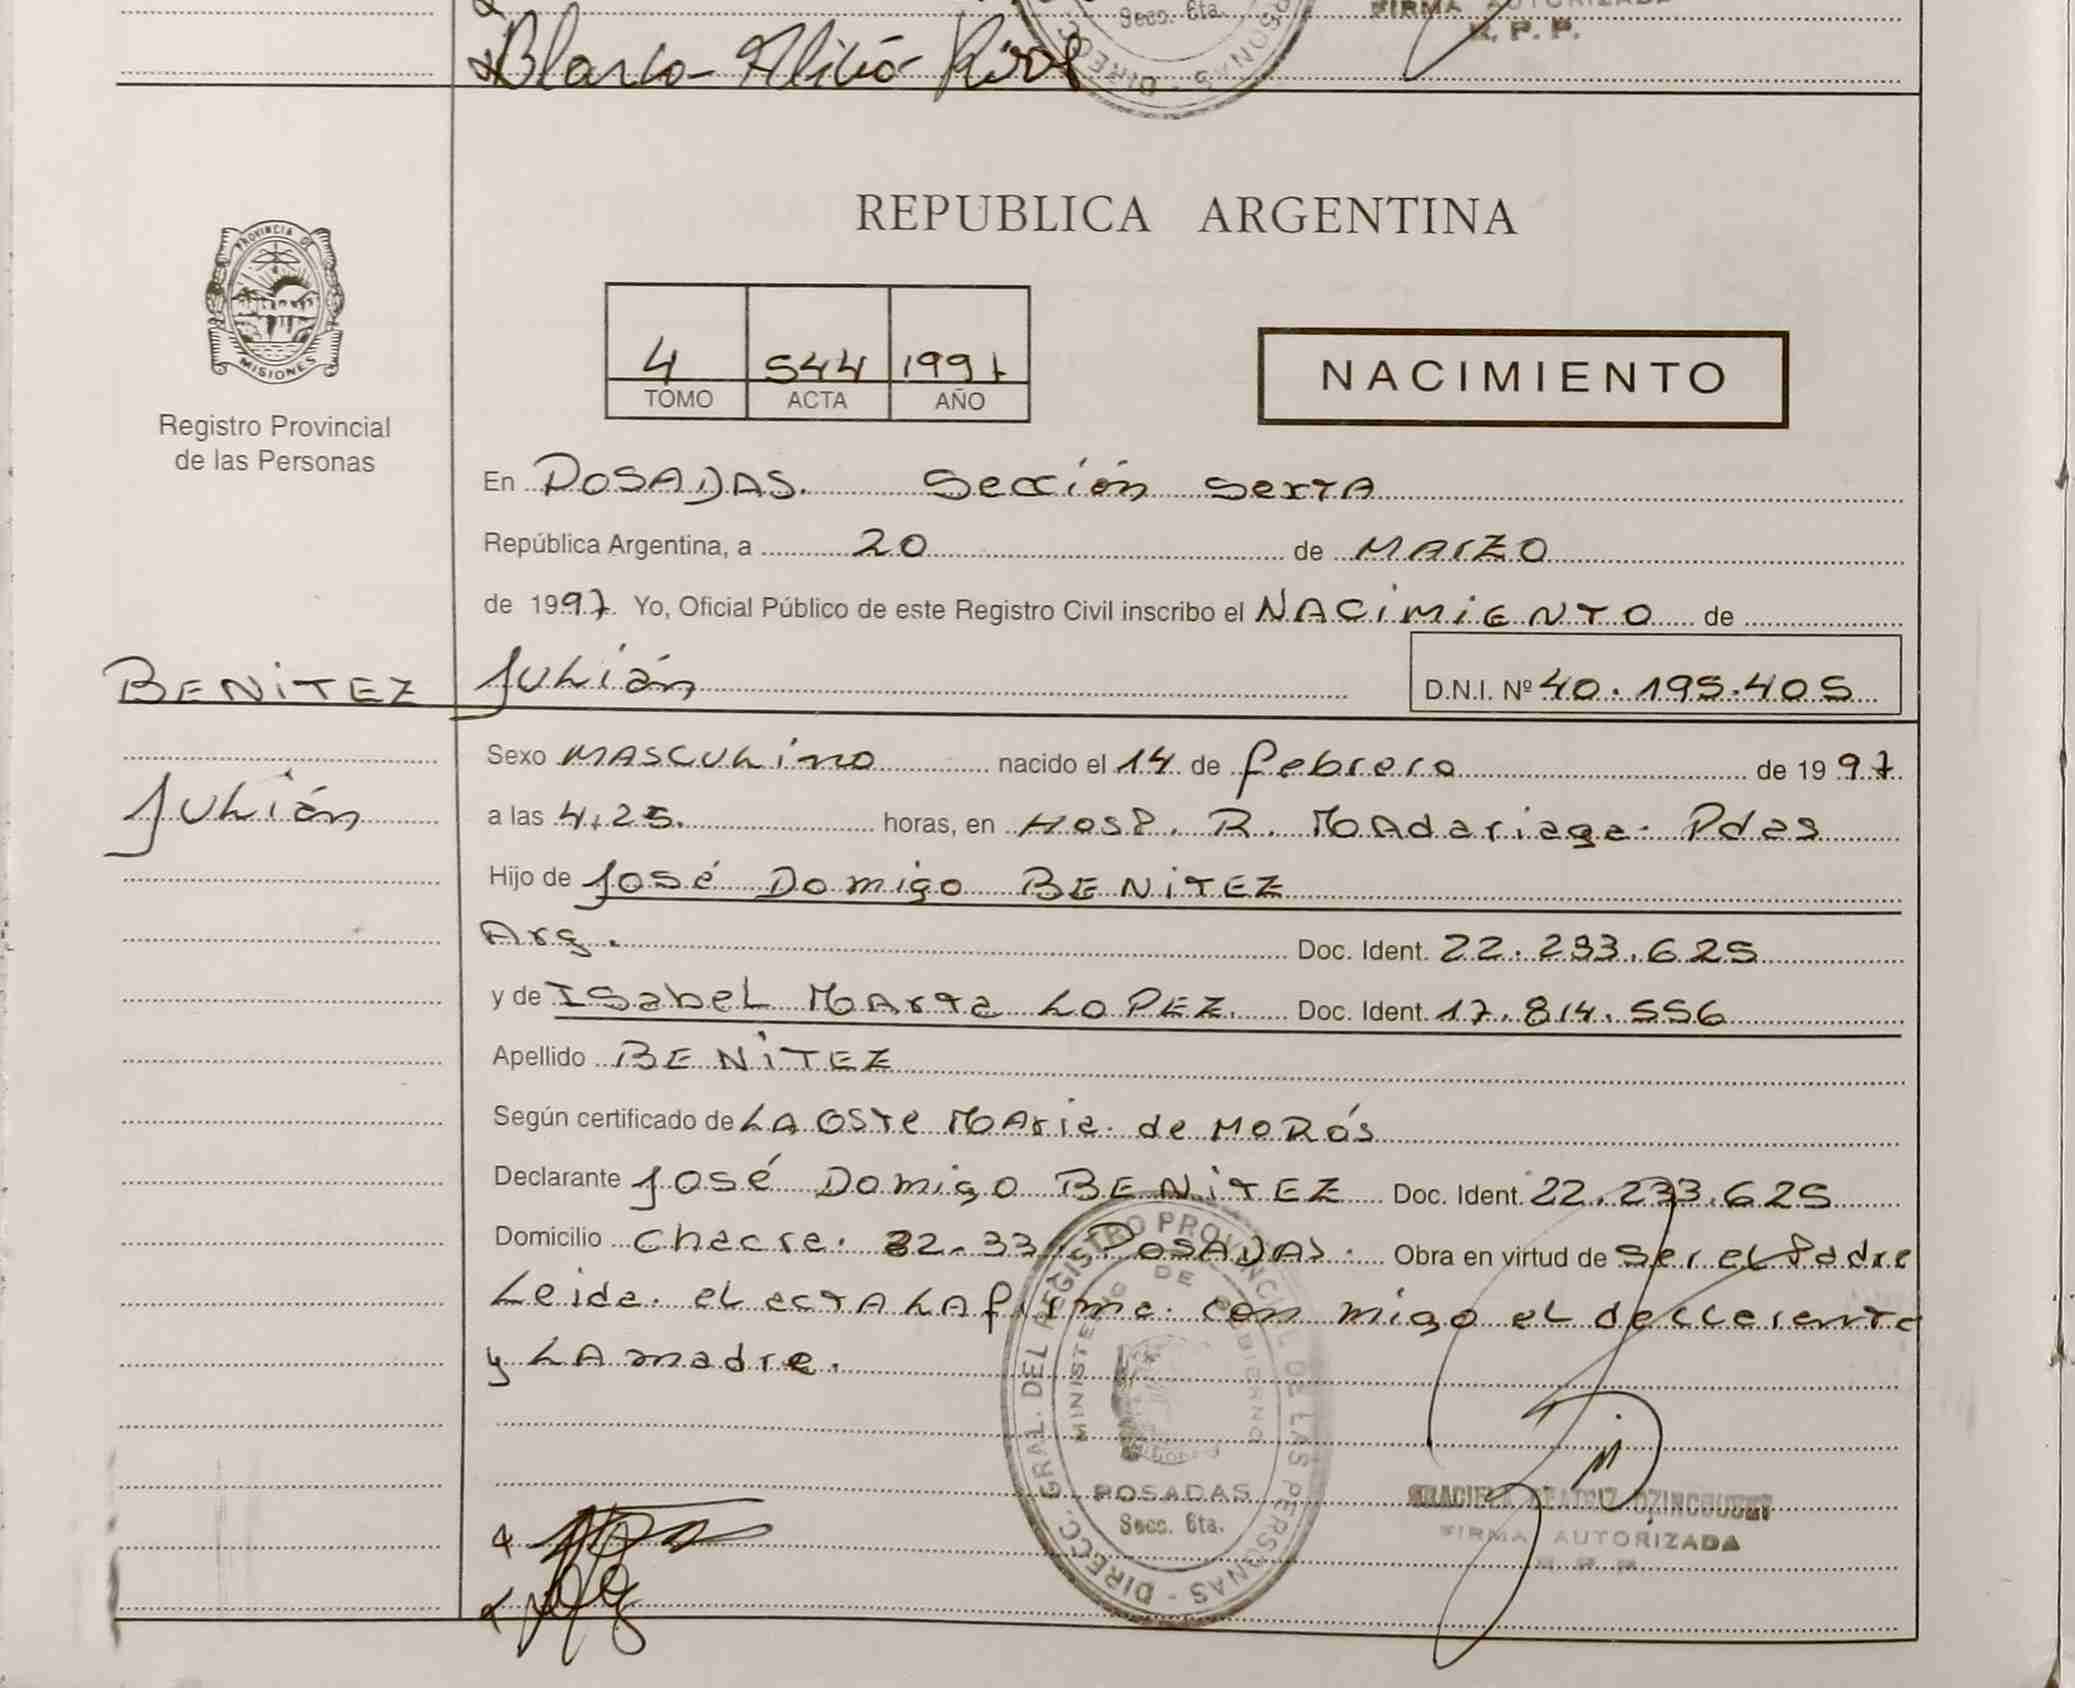 Secc. 6ta.
FIRMA AUTORIZADA
R. P. P.
Blanco Alicia
REPUBLICA ARGENTINA
PROVINCIA DE
MISIONES
Registro Provincial
de las Personas
4 544 1997
TOMO ACTA AÑO
NACIMIENTO
En POSADAS. Sección Sexta
República Argentina, a 20 de Marzo
de 1997. Yo, Oficial Público de este Registro Civil inscribo el NACIMIENTO de
BENITEZ Julián D.N.I. Nº 40.195.405
Sexo MASCULINO nacido el 14 de febrero de 1997
Julián
a las 4,25. horas, en Hosp. R. MAdariaga - Pdas
Hijo de José Domigo BENITEZ
Arg. Doc. Ident. 22.233.625
y de ISabel Marta LOPEZ. Doc. Ident. 17.814.556
Apellido BENITEZ
Según certificado de LAOSTE Maria de MORÁS
Declarante José Domigo BENITEZ Doc. Ident. 22.233.625
Domicilio Chacra. 32-33 POSADAS. Obra en virtud de Ser el Padre
Leida el acta LA firma con migo el declarante
y LA madre.
DIRECC. GRAL. DEL REGISTRO PROVINCIAL DE LAS PERSONAS
MINISTERIO DE GOBIERNO
POSADAS
Secc. 6ta.
FIRMA AUTORIZADA